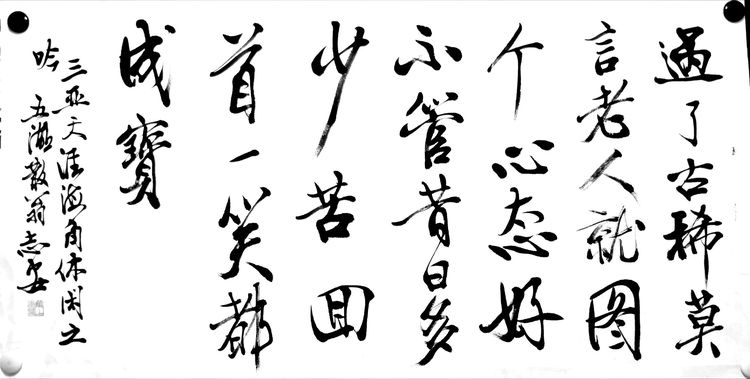 過了古稀莫
言老人就图
个心态好
不管昔日多
少苦回
首一笑都
成寶
三亚天涯海角休闲之
吟 五 散翁志安